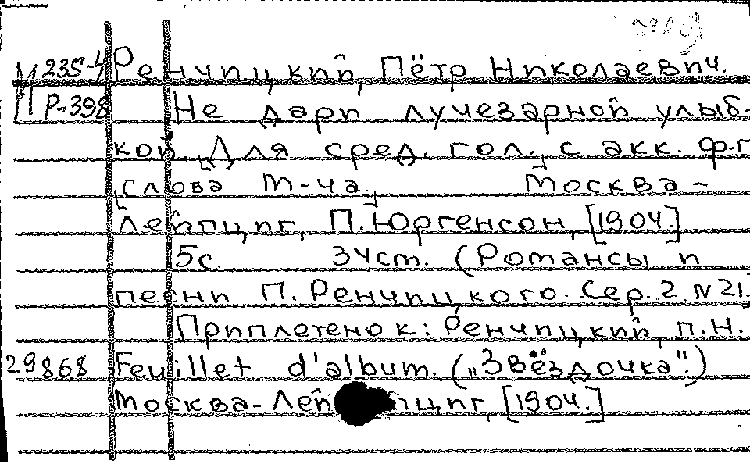 М 235-4 Ренчицкий, Пётр Николаевич.
Р-398 Не дари лучезарной улыб-
кой. Для сред. гол. с акк. ф.п.
[слова Т-ча.] Москва-
Лейпциг, П. Юргенсон, [1904.]
5с. 34см. (Романсы и
песни П. Ренчицкого. Сер. 2. N 21.
Приплетено к: Ренчицкий, П.Н.
29868 Feuillet d'album. („Звёздочка".)
Москва-Лейпциг, [1904.]